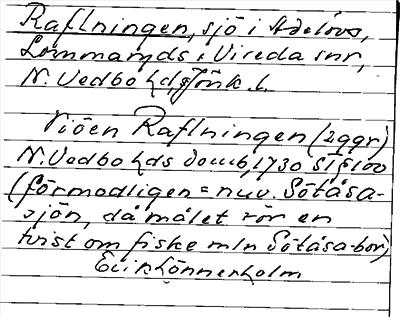 Raflningen, sjö i Adelövs,
Lommaryds o. Vireda snr,
N. Vedbo hd, Jönk. l.
Siöen Raflningen (2ggr)
N. Vedbo hds domb, 1730 § 100
(förmodligen = nuv. Sötåsa-
sjön, då målet rör en
tvist om fiske mln Sötåsa-bor)
Erik Lönnerholm